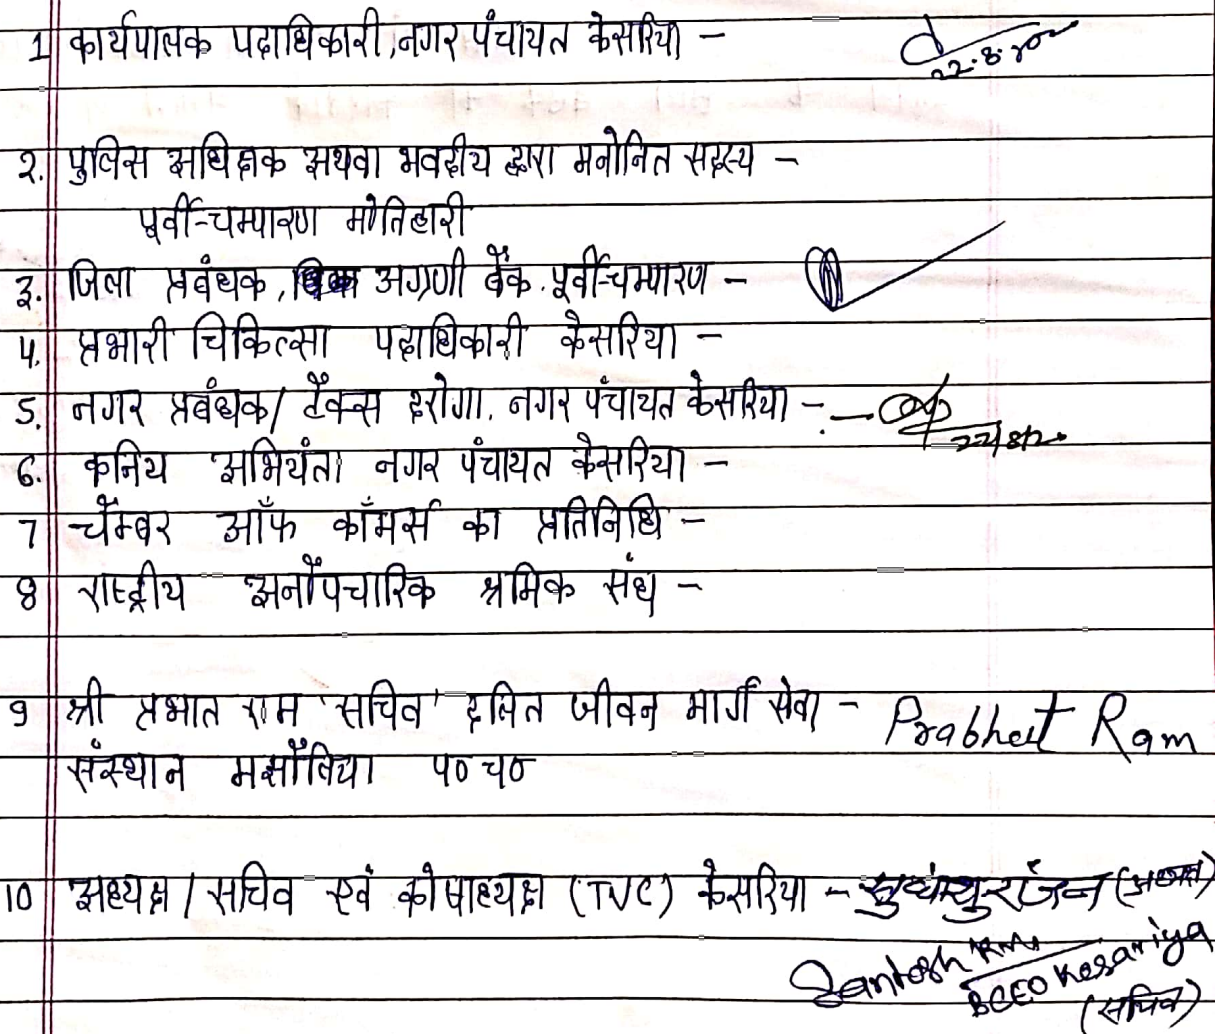 1 कार्यपालक पदाधिकारी, नगर पंचायत केसरिया -
22.8.20
2. पुलिस अधिक्षक अथवा भवदीय द्वारा मनोनित सदस्य -
पूर्वी-चम्पारण मोतिहारी
3. जिला प्रबंधक, अग्रणी बैंक, पूर्वी-चम्पारण -
4. प्रभारी चिकित्सा पदाधिकारी केसरिया -
5. नगर प्रबंधक/ टैक्स दरोगा, नगर पंचायत केसरिया -
6. कनिय अभियंता नगर पंचायत केसरिया -
7 चैम्बर ऑफ कॉमर्स का प्रतिनिधि -
8 राष्ट्रीय अनौपचारिक श्रमिक संघ -
9 श्री प्रभात राम 'सचिव' दलित जीवन मार्ग सेवा - Prabhat Ram
संस्थान मर्सोलिया प० च०
10 अध्यक्ष / सचिव एवं कोषाध्यक्ष (TVC) केसरिया - सुधांशु रंजन (अध्यक्ष)
Santosh Km.
BCEO Kesariya
(सचिव)